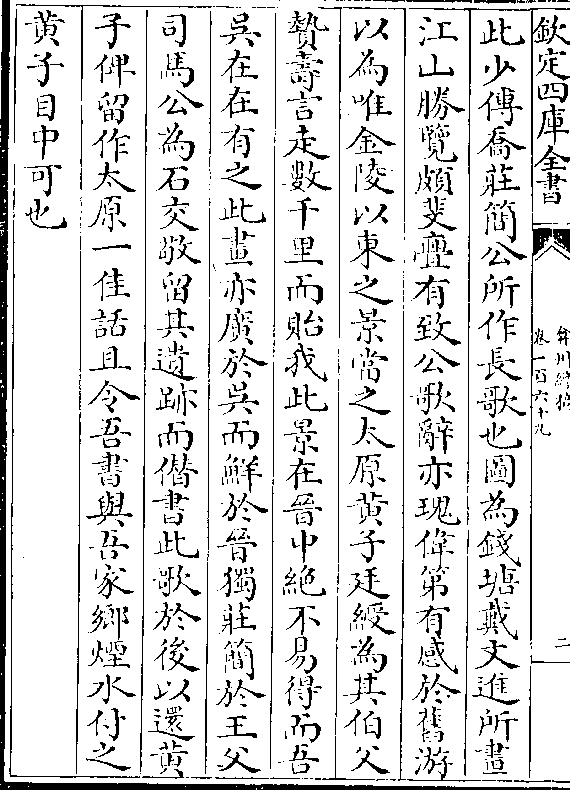 欽定四庫全書
弇州續稿
卷一百六十九
二
此少傅喬莊簡公所作長歌也圖為錢塘戴文進所畫
江山勝覽頗斐亹有致公歌辭亦瑰偉第有感於舊游
以為唯金陵以東之景當之太原黄子廷綬為其伯父
贄壽言走數千里而貽我此景在晉中絶不易得而吾
吳在在有之此畫亦廣於吳而鮮於晉獨莊簡於王父
司馬公為石交敬留其遺跡而僭書此歌於後以還黄
子俾留作太原一佳話且令吾書與吾家鄉煙水付之
黄子目中可也